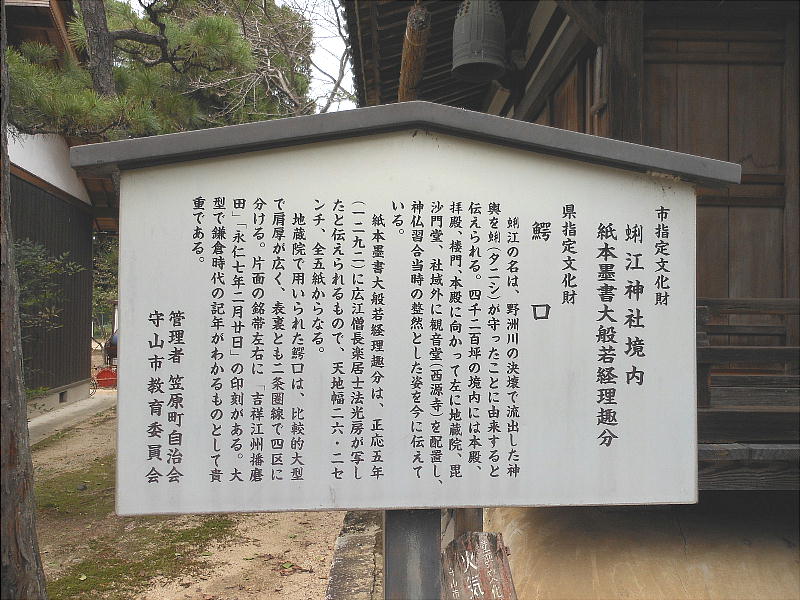 市指定文化財
蜊江神社境内
紙本墨書大般若経理趣分
県指定文化財
鰐口
蜊江の名は、野洲川の決壊で流出した神
輿を蜊(タニシ)が守ったことに由来すると
伝えられる。四千二百坪の境内には本殿、
拝殿、楼門、本殿に向かって左に地蔵院、毘
沙門堂、社域外に観音堂(西源寺)を配置し、
神仏習合当時の整然とした姿を今に伝えて
いる。
紙本墨書大般若経理趣分は、正応五年
(一二九二)に広江僧長楽居士法光房が写し
たと伝えられるもので、天地幅二六・二セ
ンチ、全五紙からなる。
地蔵院で用いられた鰐口は、比較的大型
で肩厚が広く、表裏とも二条圏線で四区に
分ける。片面の銘帯左右に「吉祥江州播磨
田」「永仁七年二月廿日」の印刻がある。大
型で鎌倉時代の記年がわかるものとして貴
重である。
管理者 笠原町自治会
守山市教育委員会
火気